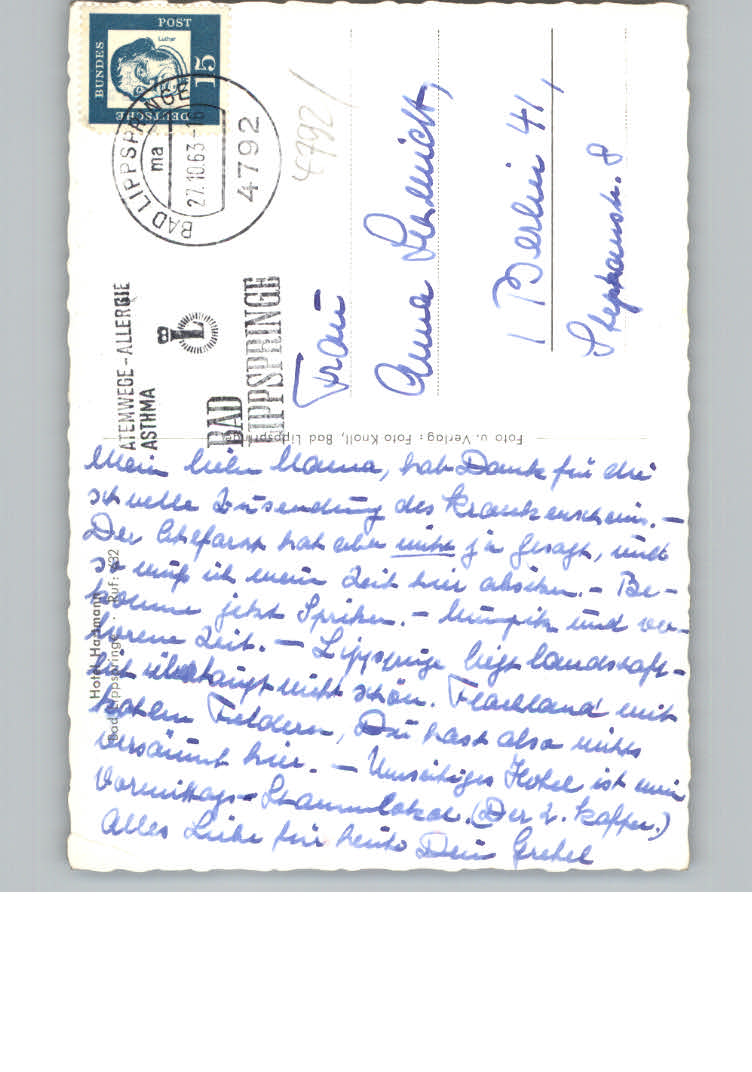 BUNDES
POST
DEUTSCHE
Luther
15
BAD LIPPSPRINGE
ma
27.10.63-18
4792
4792/
ATEMWEGE-ALLERGIE
ASTHMA
BAD
LIPPSPRINGE
Frau
Anna
1 Berlin 41,
Stephanstr. 8
Foto u. Verlag: Foto Knoll, Bad Lippspringe
Hotel Hartmann
Bad Lippspringe · Ruf: 432
Mein liebe Mama, hab Dank für die
schnelle Zusendung des Krankenscheins. –
Der Chefarzt hat aber nicht ja gesagt, und
so muß ich meine Zeit hier absitzen. – Be-
komme jetzt Spritzen. – Mumpitz und ver-
lorene Zeit. – Lippspringe liegt landschaft-
lich überhaupt nicht schön. Flachland mit
kahlen Feldern, Du hast also nichts
versäumt hier. – Umseitiges Hotel ist mein
Vormittags-Stammlokal. (Der 2. Kaffee.)
Alles Liebe für heute Dein Gretel